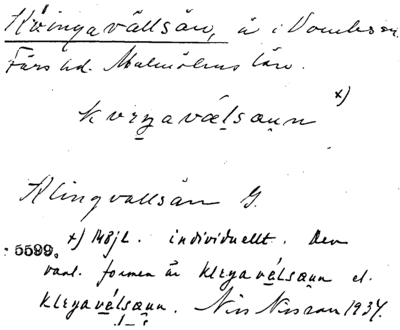 Klingavällsån, å i Vombs sn.
Färs hd. Malmöhus län.
kvıŋavál̥saųn x)
Klingvallsån G.
5599.
x) Möjl. individuellt. Den
vanl. formen är klıŋavél̥saųn el.
klıŋavél̥saųn. Nils Nilsson 1934.